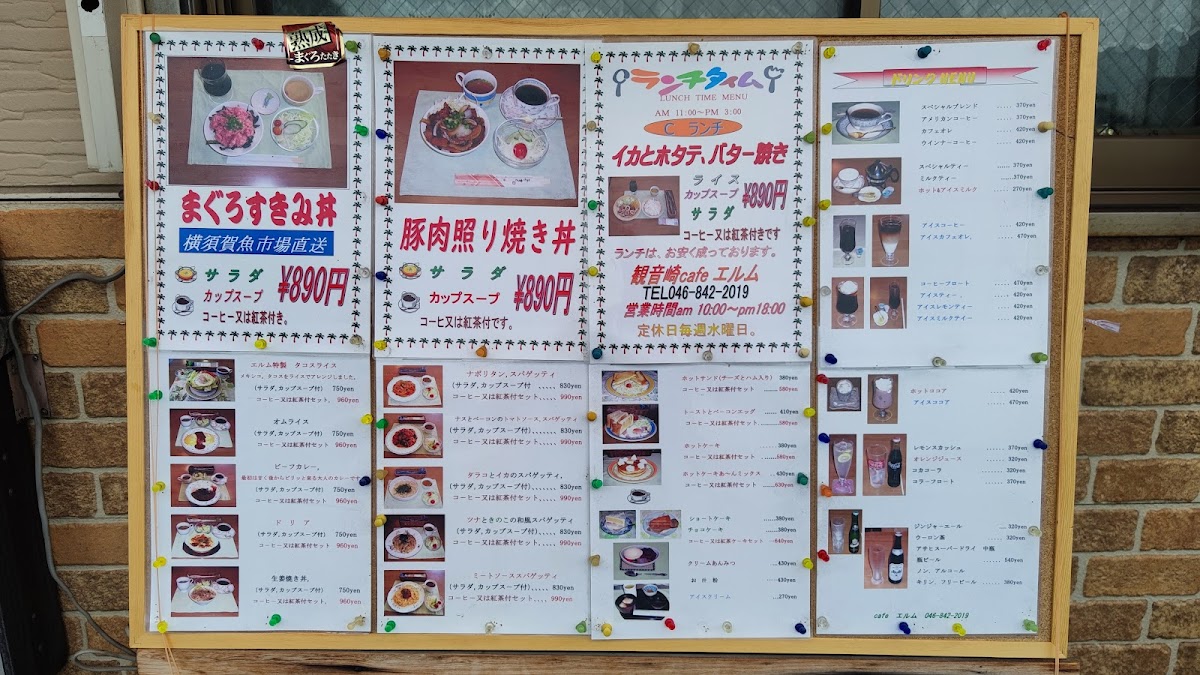 熟成
まぐろたたき
まぐろすきみ丼
横須賀魚市場直送
サラダ
カップスープ
¥890円
コーヒー又は紅茶付き。
豚肉照り焼き丼
サラダ
カップスープ
¥890円
コーヒ又は紅茶付です。
ランチタイム
LUNCH TIME MENU
AM 11:00~PM 3:00
C ランチ
イカとホタテ、バター焼き
ライス
カップスープ
サラダ
¥890円
コーヒー又は紅茶付きです
ランチは、お安く成っております。
観音崎cafe エルム
TEL046-842-2019
営業時間am 10:00~pm18:00
定休日毎週水曜日。
ドリンク MENU
スペシャルブレンド ..... 370yen
アメリカンコーヒー ..... 370yen
カフェオレ ..... 420yen
ウインナーコーヒー ..... 420yen
スペシャルティー ..... 370yen
ミルクティー ..... 370yen
ホット&アイスミルク ..... 270yen
アイスコーヒー ..... 420yen
アイスカフェオレ. ..... 470yen
コーヒーフロート ..... 470yen
アイスティー. ..... 420yen
アイスレモンティー ..... 420yen
アイスミルクティー ..... 420yen
エルム特製 タコスライス
メキシコ、タコスをライスでアレンジしました。
(サラダ,カップスープ付) 750yen
コーヒー又は紅茶付セット. 960yen
オムライス
(サラダ,カップスープ付) 750yen
コーヒー又は紅茶付セット. 960yen
ビーフカレー。
最初はまく後からピリッと来る大人のカレーです
(サラダ,カップスープ付. 750yen
コーヒー又は紅茶付セット 960yen
ドリア
(サラダ,カップスープ付) 750yen
コーヒー又は紅茶付セット 960yen
生姜焼き丼,
(サラダ,カップスープ付) 750yen
コーヒー又は紅茶付セット. 360yen
ナポリタン,スパゲッティ
(サラダ,カップスープ付 ..... 830yen
コーヒー又は紅茶付セット..... 990yen
ナスとベーコンのトマトソース,スパゲッティ
(サラダ,カップスープ付)..... 830yen
コーヒー又は紅茶付セット..... 990yen
タラコとイカのスパゲッティ,
(サラダ,カップスープ付)..... 830yen
コーヒー又は紅茶付セット..... 990yen
ツナときのこの和風スパゲッティ
(サラダ,カップスープ付)..... 830yen
コーヒー又は紅茶付セット..... 990yen
ミートソーススパゲッティ
(サラダ,カップスープ付)..... 830yen
コーヒー又は紅茶付セット.... 990yen
ホットサンド(チーズとハム入り) 380yen
コーヒー又は紅茶付セット ..... 580yen
トーストとベーコンエッグ ..... 410yen
コーヒー又は紅茶付セット ......580yen
ホットケーキ 380yen
コーヒー又は紅茶付セット ......580yen
ホットケーキあ~んミックス ..430yen
コーヒー又は紅茶付セット ......630yen
ショートケーキ ......380yen
チョコケーキ ......380yen
コーヒー又は紅茶ケーキセット ...640yen
クリームあんみつ ......430yen
お汁粉 ......430yen
アイスクリーム ......270yen
ホットココア 420yen
アイスココア ..... 470yen
レモンスカッシュ ..... 370yen
オレンジジュース ..... 320yen
コカコーラ ..... 320yen
コーラフロート ..... 370yen
ジンジャーエール ... 320yen
ウーロン茶 ..... 320yen
アサヒスーパードライ 中瓶
瓶ビール ...... 540yen
ノン,アルコール
キリン,フリービール ...... 380yen
cafe エルム 046-842-2019